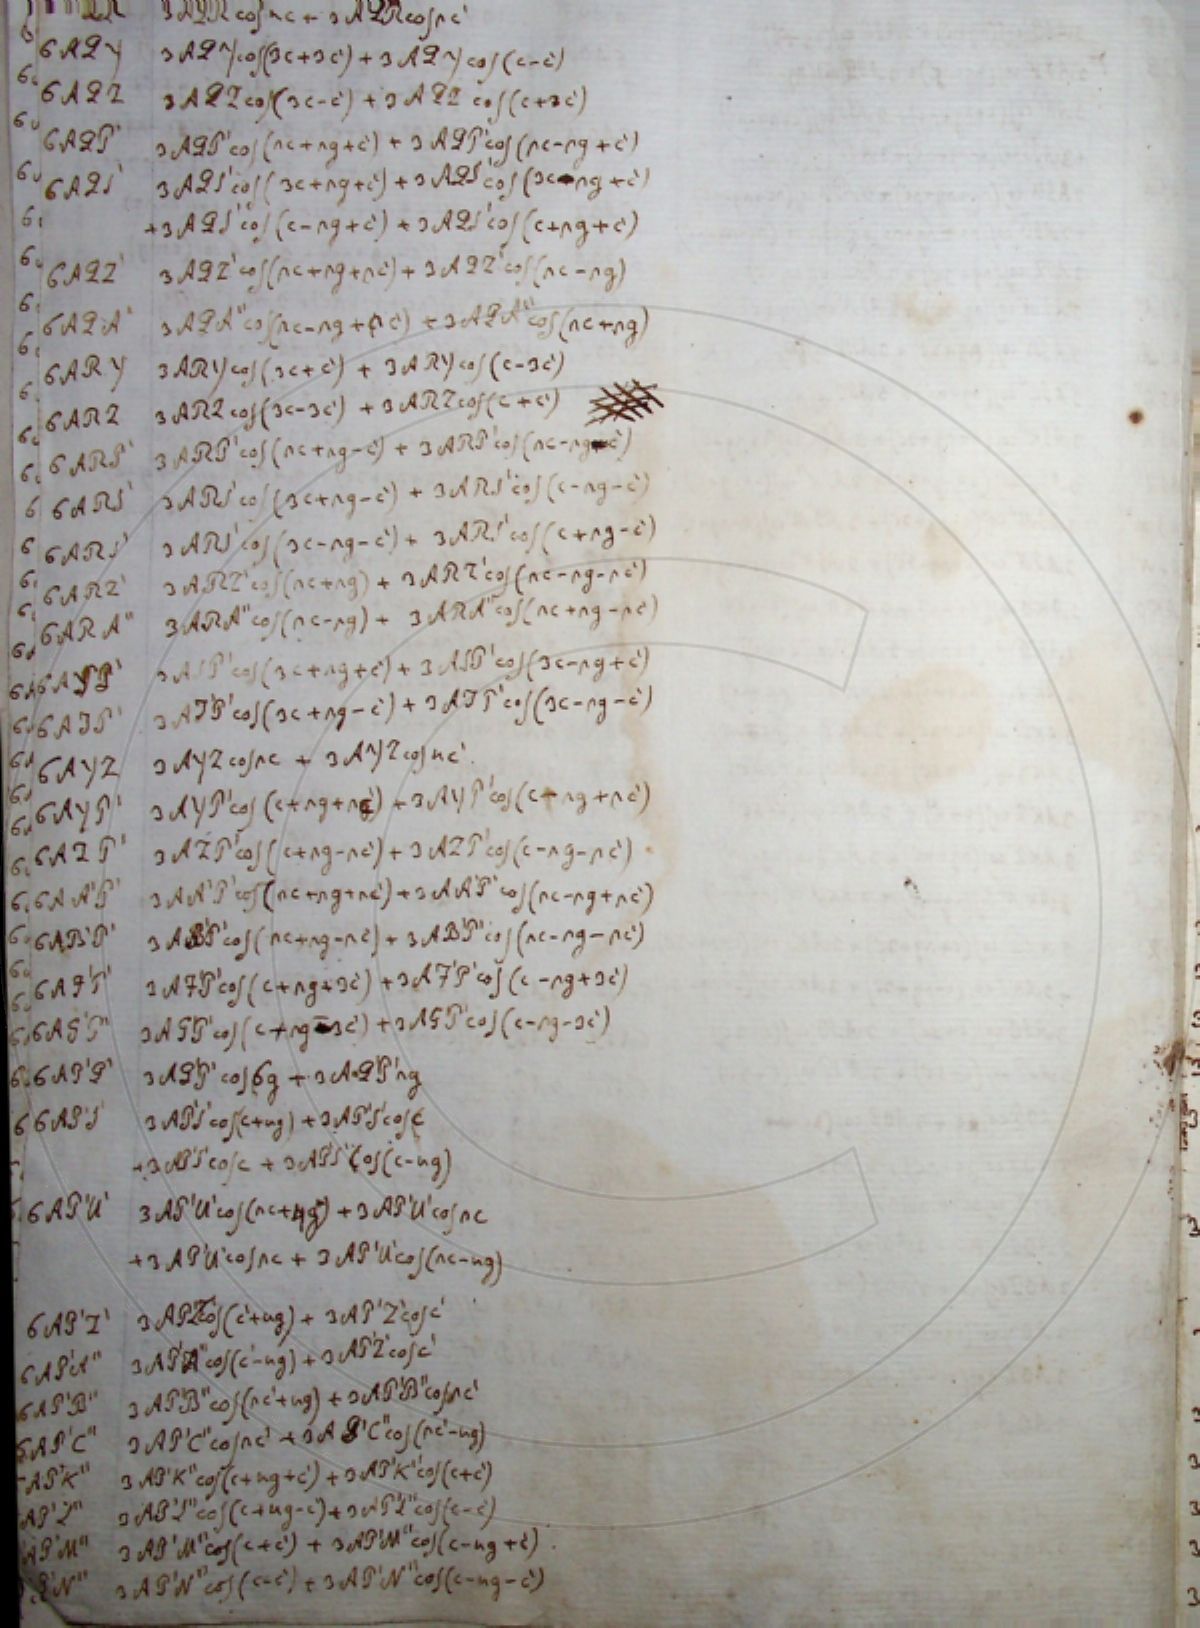 3AQRcosnc + 3AQRcosnc'
6AQY 3AQYcos(3c+3c') + 3AQYcos(c-c')
6AQZ 3AQZcos(3c-c') + 3AQZ cos(c+3c')
6AQP' 3AQP'cos(nc+ng+c') + 3AQP'cos(nc-ng+c')
6AQS' 3AQS'cos(3c+ng+c') + 3AQS'cos(3c-ng+c')
+3AQS'cos(c-ng+c') + 3AQS'cos(c+ng+c')
6AQZ' 3AQZ'cos(nc+ng+nc') + 3AQZ'cos(nc-ng)
6AQA" 3AQA"cos(nc-ng+nc') + 3AQA"cos(nc+ng)
6ARY 3ARYcos(3c+c') + 3ARYcos(c-3c')
6ARZ 3ARZcos(3c-3c') + 3ARZcos(c+c')
6ARP' 3ARP'cos(nc+ng-c') + 3ARP'cos(nc-ng-c')
6ARS' 3ARS'cos(3c+ng-c') + 3ARS'cos(c-ng-c')
6ARS' 3ARS'cos(3c-ng-c') + 3ARS'cos(c+ng-c')
6ARZ' 3ARZ'cos(nc+ng) + 3ARZ'cos(nc-ng-nc')
6ARA" 3ARA"cos(nc-ng) + 3ARA"cos(nc+ng-nc')
3ASP'cos(3c+ng+c') + 3ASP'cos(3c-ng+c')
6ATP' 3ATP'cos(3c+ng-c') + 3ATP'cos(3c-ng-c')
6AYZ 3AYZcosnc + 3AYZcosnc'.
6AYP' 3AYP'cos(c+ng+nc') + 3AYP'cos(c-ng+nc')
6AZP' 3AZP'cos(c+ng-nc') + 3AZP'cos(c-ng-nc')
6AA'P' 3AA'P'cos(nc+ng+nc') + 3AA'P'cos(nc-ng+nc')
6AB'P' 3AB'P'cos(nc+ng-nc') + 3AB'P'cos(nc-ng-nc')
6AF'P' 3AF'P'cos(c+ng+3c') + 3AF'P'cos(c-ng+3c')
6AG'P' 3AG'P'cos(c+ng-3c') + 3AG'P'cos(c-ng-3c')
6AP'Q' 3AQ'P'cos6g + 3AQ'P'ng
6AP'S' 3AP'S'cos(c+ng) + 3AP'S'cosc
+3AP'S'cosc + 3AP'S'cos(c-ng)
6AP'U' 3AP'U'cos(nc+4g) + 3AP'U'cosnc
+3AP'U'cosnc + 3AP'U'cos(nc-ng)
6AP'Z' 3AP'Z'cos(c'+ng) + 3AP'Z'cosc'
6AP'A" 3AP'A"cos(c'-ng) + 3AP'Zcosc'
6AP'B" 3AP'B"cos(nc'+ng) + 3AP'B"cosnc'
6AP'C" 3AP'C"cosnc' + 3AP'C"cos(nc'-ng)
AP'K" 3AP'K"cos(c+ng+c') + 3AP'K"cos(c+c')
AP'L" 3AP'L"cos(c+ng-c') + 3AP'L"cos(c-c')
AP'M" 3AP'M"cos(c+c') + 3AP'M"cos(c-ng+c').
P'N" 3AP'N"cos(c-c') + 3AP'N"cos(c-ng-c')